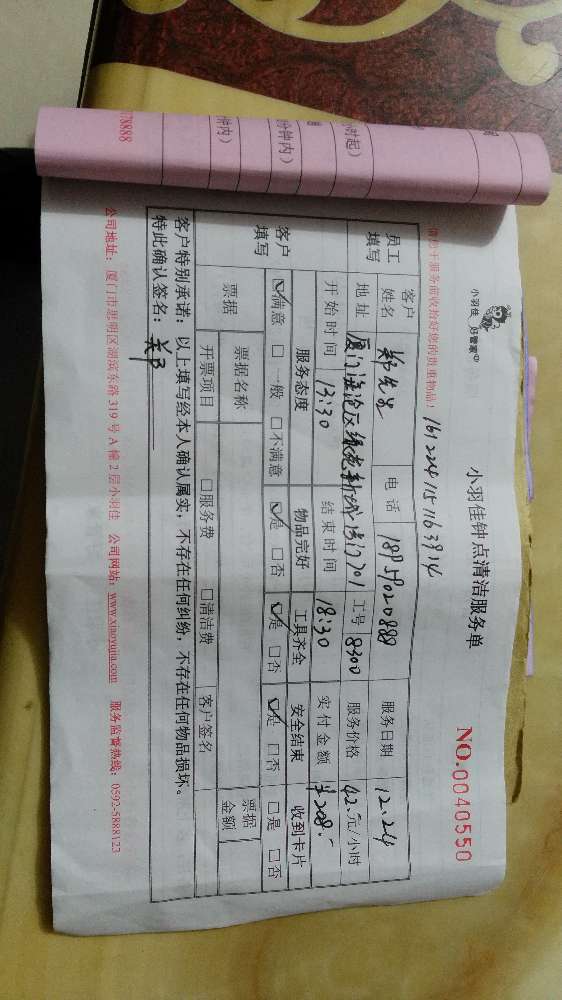 小羽佳 好管家
小羽佳钟点清洁服务单
NO.0040550
请您于服务前收拾好您的贵重物品！
1612241151163914
员工填写 客户姓名 郑先生 电话 18959020888 服务日期 12.24
地址 厦门海沧区绿苑新城 701 工号 8300 服务价格 42元/小时
开始时间 13:30 结束时间 18:30 实付金额 ¥208.
客户填写 服务态度 物品完好 工具齐全 安全结束 收到卡片
☑满意 □一般 □不满意 ☑是 □否 ☑是 □否 ☑是 □否 □是 □否
票据 票据名称 票据金额
开票项目 □服务费 □清洁费 客户签名
客户特别承诺：以上填写经本人确认属实，不存在任何纠纷，不存在任何物品损坏。
特此确认签名：
公司地址：厦门市思明区湖滨东路319号A幢2层小羽佳 公司网站：www.xiaoyujia.com 服务监督热线：0592-5888123
时起）
分钟内）
钟内）
78888